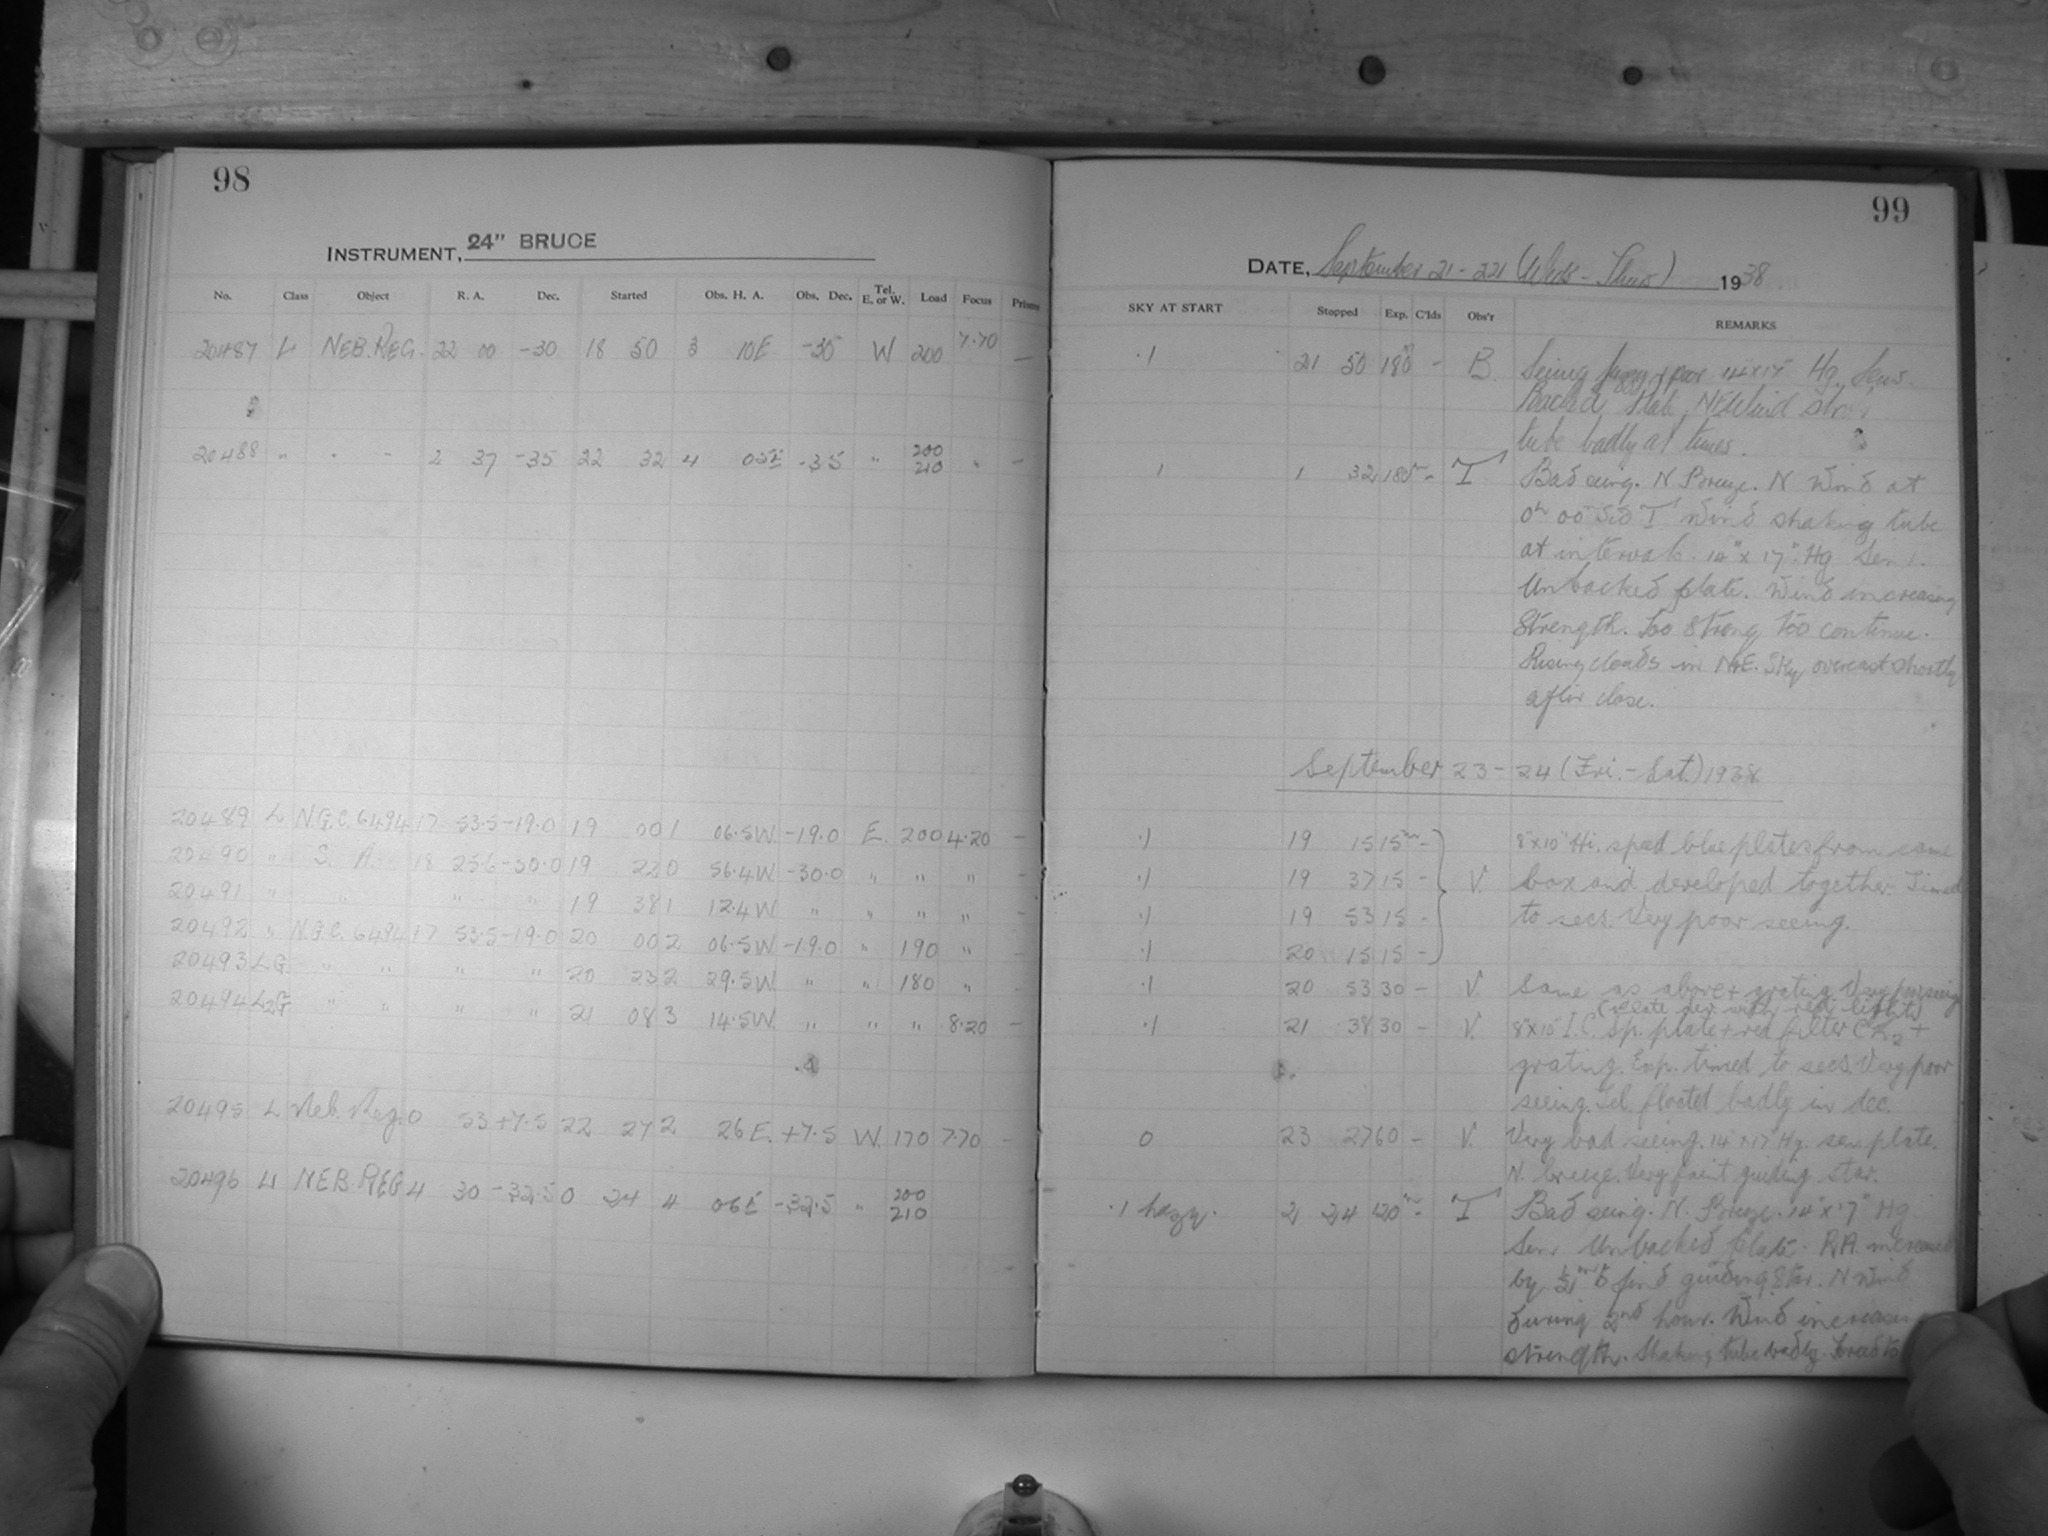 98
INSTRUMENT, 24" BRUCE
No. Class Object R. A. Dec. Started Obs. H. A. Obs. Dec. Tel. E. or W. Load Focus Prisms
20487 L NEB. REG. 22 00 -30 18 50 3 10E -35 W 200 7.70 —
20488 " " - 2 37 -35 22 32 4 05E -35 " 200 210 " —
20489 L N.G.C. 6494 17 53.5 -19.0 19 00 1 06.5W -19.0 E. 200 4.20 —
20490 " S. A. 18 25.6 -30.0 19 22 0 56.4W -30.0 " " " —
20491 " " " " 19 38 1 12.4W " " " " —
20492 " N.G.C. 6494 17 53.5 -19.0 20 00 2 06.5W -19.0 " 190 " —
20493 LG " " " " 20 23 2 29.5W " " 180 " —
20494 L2G " " " " 21 08 3 14.5W " " " 8.20 —
20495 L Neb. Reg. 0 53 +7.5 22 27 2 26E. +7.5 W. 170 7.70 —
20496 L NEB. REG 4 30 -32.5 0 24 4 06E -32.5 " 200 210
99
DATE, September 21-22 (Weds - Thurs) 1938
SKY AT START Stopped Exp. C'lds Obs'r REMARKS
.1 21 50 180m - B. Seeing poor 14"x17" Hg. Sens.
Backed Plate. NE Wind
tube badly at times.
1 1 32 180m - T Bad seeing. N Breeze. N Wind at
0h 00 Sid T Wind shaking tube
at intervals. 14" x 17" Hg Sen.
Unbacked plate. Wind increasing
Strength. Too Strong Too continue.
Rising clouds in N+E. Sky overcast shortly
after close.
September 23-24 (Fri.-Sat.) 1938
.1 19 15 15m - 8"x10" Hi. speed blue plates from same
.1 19 37 15 - V. box and developed together. Timed
.1 19 53 15 - to secs. Very poor seeing.
.1 20 15 15 -
.1 20 53 30 - V. Same as above + grating Very poor seeing
(plate dev with red light)
.1 21 38 30 - V. 8"x10" I.C. sp. plate + red filter CR2 +
grating. Exp. timed to secs. Very poor
seeing. Tel. floated badly in dec.
0 23 27 60 - V. Very bad seeing. 14"x17" Hg. sen plate.
N. breeze. Very faint guiding star.
.1 hazy. 2 24 120m - T Bad seeing. N. Breeze. 14" x 17" Hg
Sen. Unbacked plate. R.A. increased
by to find guiding Star. N Wind
during 2nd hour. Wind increasing
strength. Shaking tube badly. Forced to